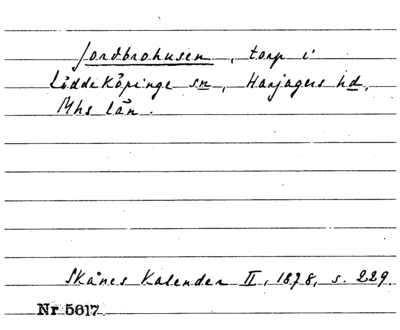 Jordbrohusen, torp i
Löddeköpinge sn, Harjagers hd,
Mhs län.
Skånes Kalender II, 1878, s. 229.
Nr 5617